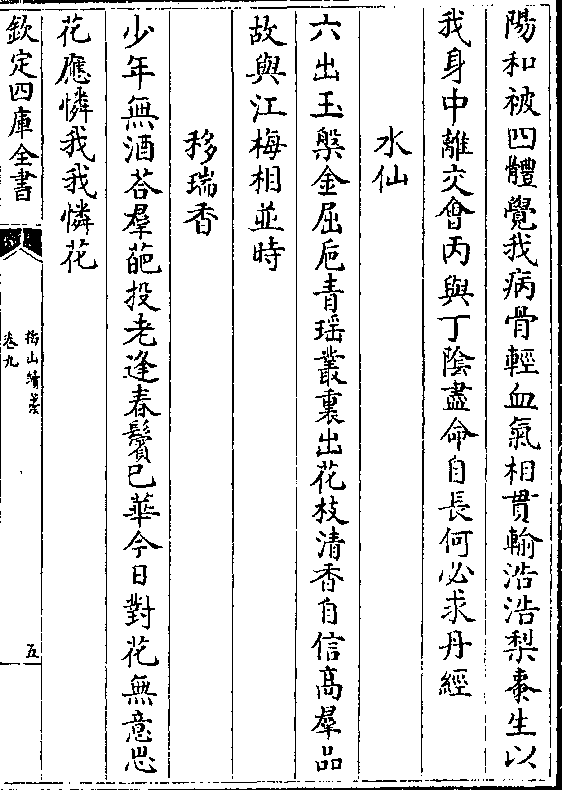 陽和被四體覺我病骨輕血氣相貫輸浩浩梨棗生以
我身中離交會丙與丁陰盡命自長何必求丹經
水仙
六出玉槃金屈巵青瑶叢裏出花枝清香自信髙羣品
故與江梅相並時
移瑞香
少年無酒荅羣葩投老逢春鬢已華今日對花無意思
花應憐我我憐花
欽定四庫全書
梅山續藁
卷九
五